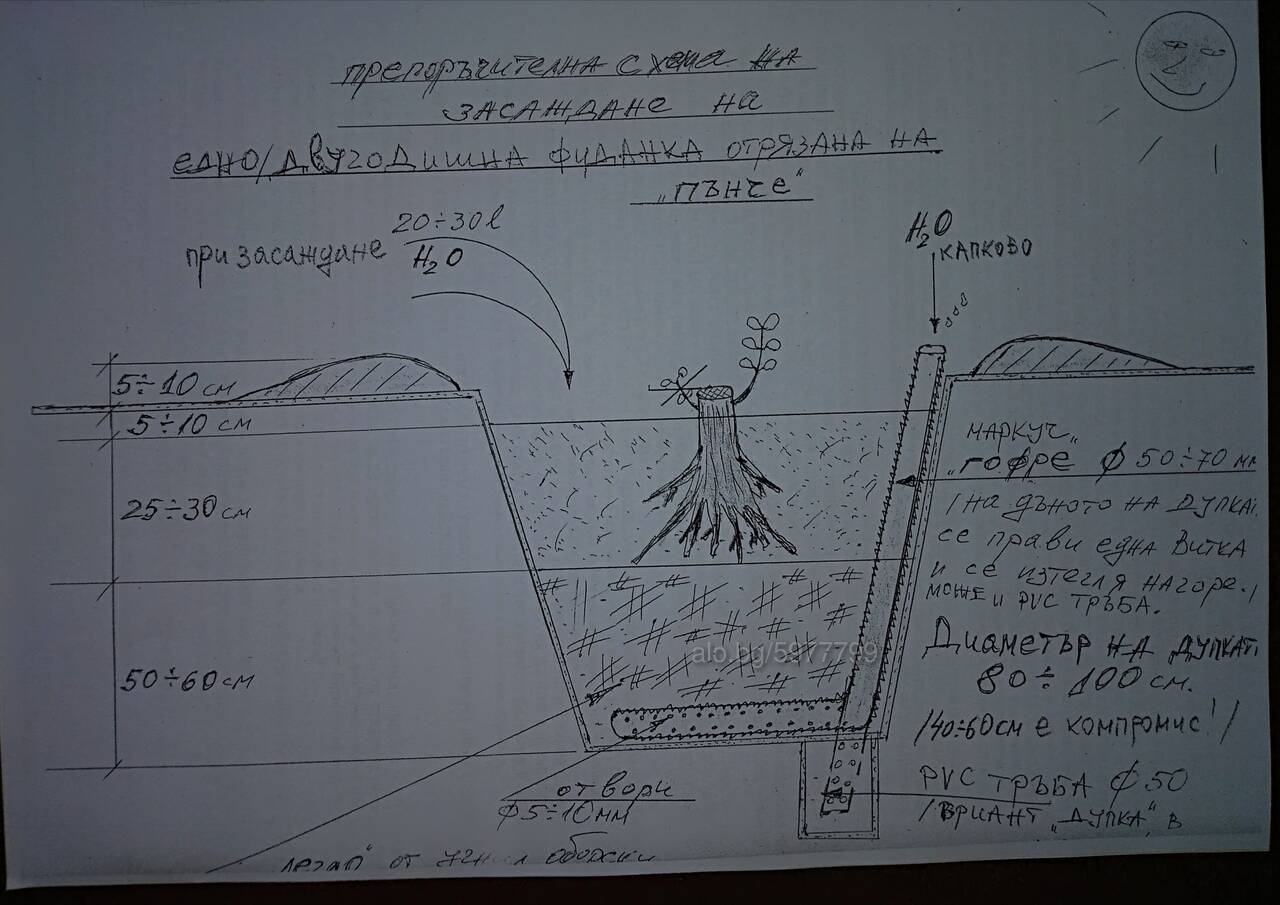 ПРЕПОРЪЧИТЕЛНА СХЕМА НА
ЗАСАЖДАНЕ НА
ЕДНО/ДВУГОДИШНА ФИДАНКА ОТРЯЗАНА НА
„ПЪНЧЕ“
при засаждане 20÷30l
H₂O
H₂O
КАПКОВО
5÷10 см
5÷10 см
25÷30 см
50÷60 см
МАРКУЧ
„ГОФРЕ“ ϕ 50÷70 мм
/НА ДЪНОТО НА ДУПКАТ
се прави една ВИТКА
и се изтегля нагоре./
МОЖЕ И PVC ТРЪБА.
Диаметър НА ДУПКАТ
80÷100 см.
/40÷60см е компромис!/
alo.bg/5977799
PVC ТРЪБА ϕ 50
/ВРИАНТ „ДУПКА“ В
отвори
ϕ 5÷10мм
от оборски